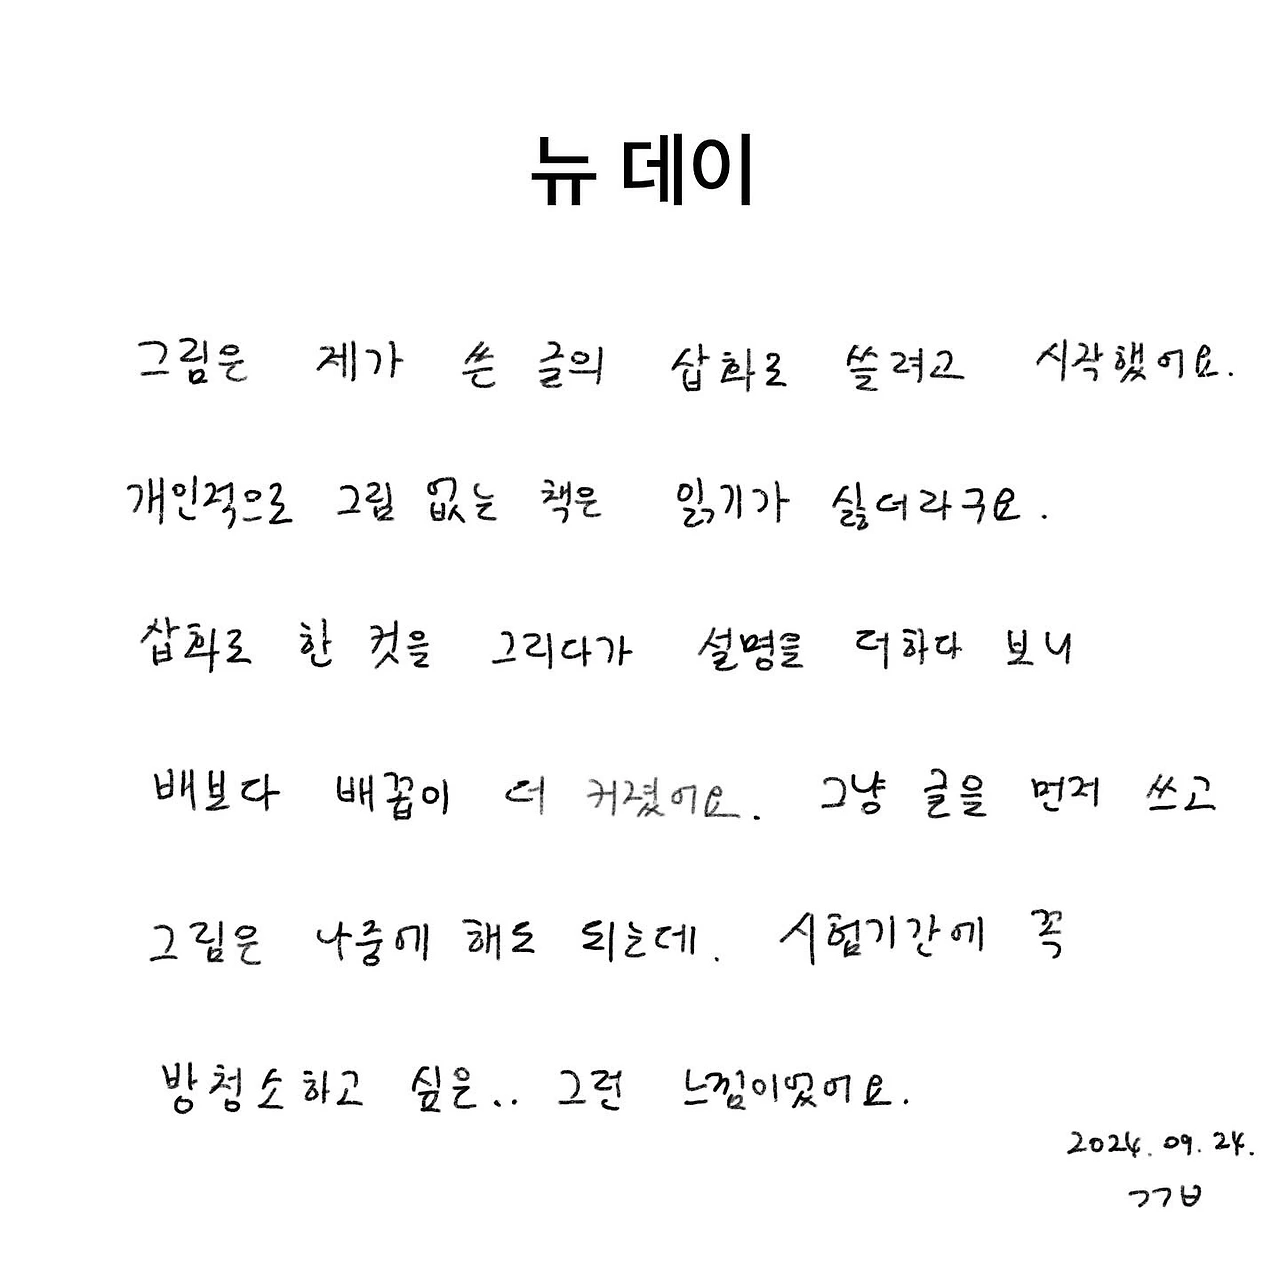 뉴 데이
그림은 제가 쓴 글의 삽화로 쓸려고 시작했어요.
개인적으로 그림 없는 책은 읽기가 싫더라구요.
삽화로 한 컷을 그리다가 설명을 더하다 보니
배보다 배꼽이 더 커졌어요. 그냥 글을 먼저 쓰고
그림은 나중에 해도 되는데. 시험기간에 꼭
방청소하고 싶은.. 그런 느낌이었어요.
2024. 09. 24.
ㄱㄱㅂ